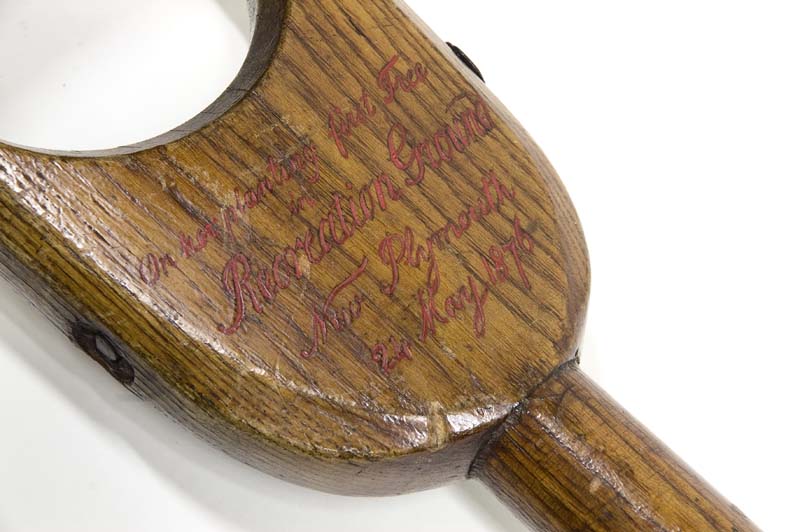 On her planting first Tree
in
Recreation Ground
New Plymouth
24 May 1876